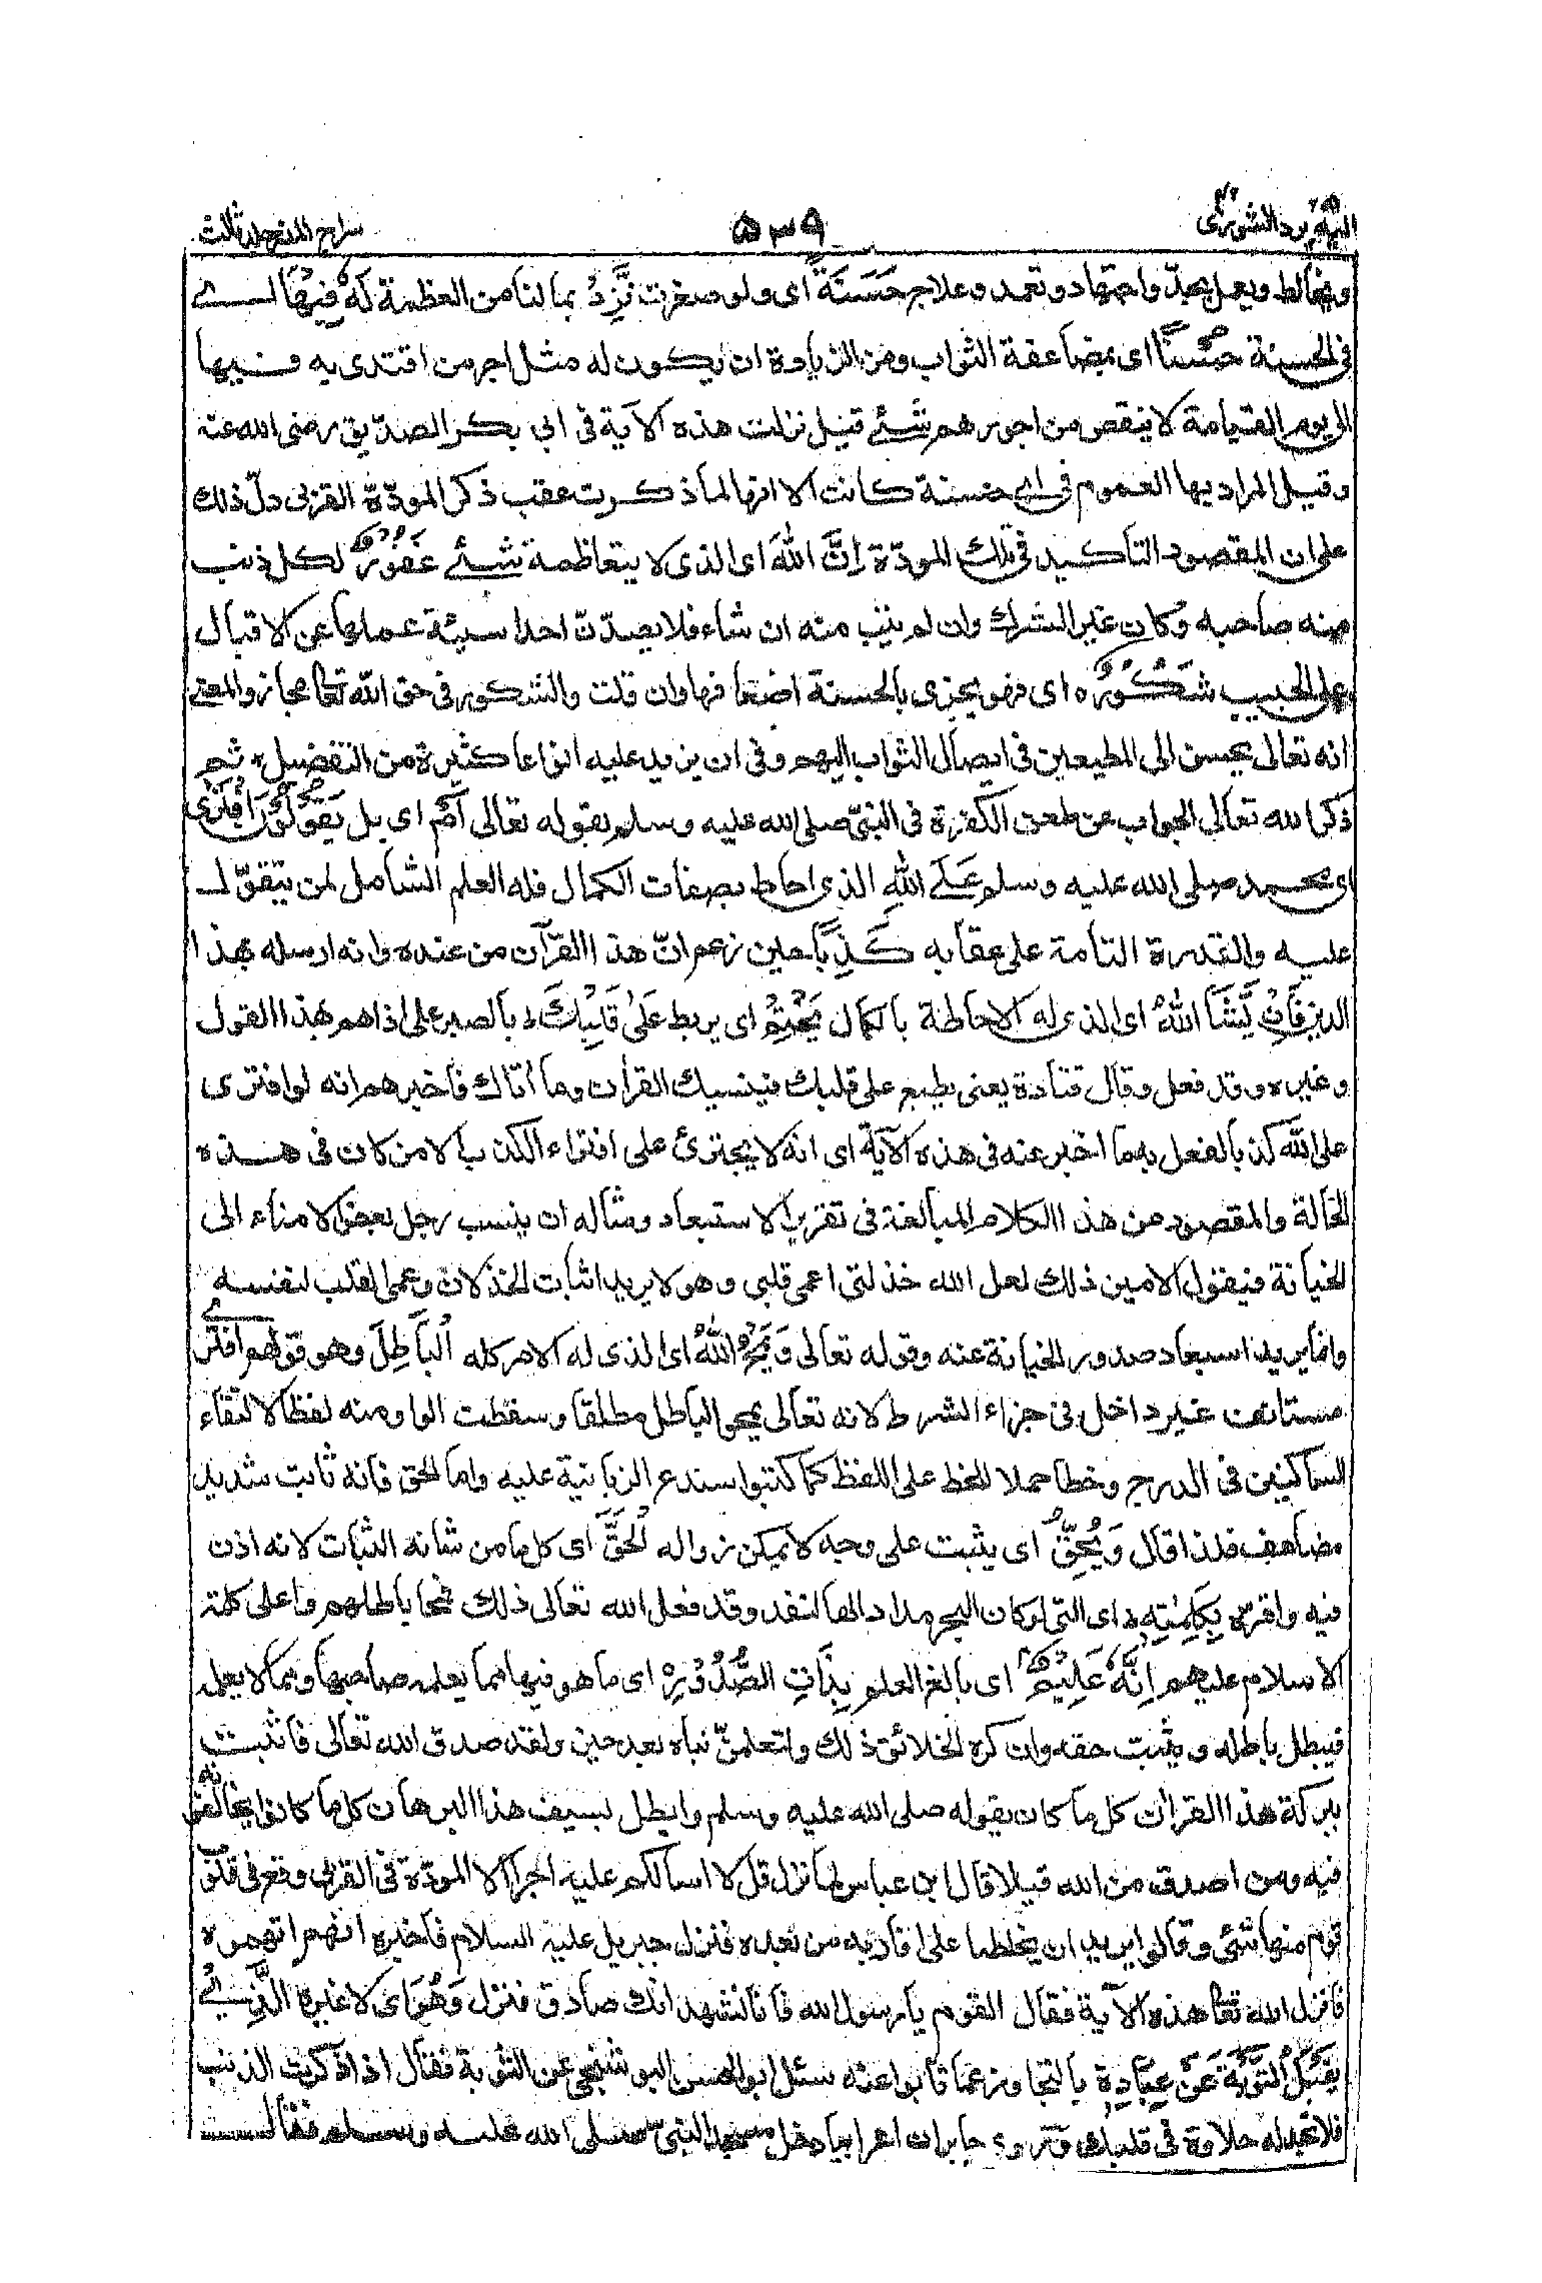 اليه يرد الشورى ٥٣٩ سراج المنير جلد ثالث
ويخالط ويعمل بجدّ واجتهاد وتعمد وعلاج حَسَنَةً اى ولو صغرت نَّزِدْ بما لنا من العظمة لَهٗ فِيْهَا اے
فى الحسنة حُسْنًا اى بمضاعفة الثواب ومن الزيادة ان يكون له مثل اجر من اقتدى به فيها
الى يوم القيامة لا ينقص من اجورهم شئ قيل نزلت هذه الآية فى ابى بكر الصدّيق رضى الله عنه
وقيل المراد بها العموم فى اى حسنة كانت الا انها لما ذكرت عقب ذكر المودّة القربى دلّ ذلك
على ان المقصود التأكيد فى تلك المودّة اِنَّ اللّٰهَ اى الذى لا يتعاظمه شئ غَفُوْرٌ لكل ذنب
منه صاحبه وكان غير الشرك وان لم يتب منه ان شاء فلا يصدّنّ احدا سيئة عملها عن الاقبال
على الحبيب شَكُوْرٌ ه اى فهو يجزى بالحسنة اضعافها وان قلت والشكور فى حق الله تعا مجاز والمعنے
انه تعالى يحسن الى المطيعين فى ايصال الثواب اليهم وفى ان يزيد عليه انواعا كثيرة من التفضيل ثم
ذكر الله تعالى الجواب عن طعن الكفرة فى النبىّ صلى الله عليه وسلم بقوله تعالى اَمْ اى بل يَقُوْلُوْنَ افْتَرٰى
اى محمد صلى الله عليه وسلم عَلَے اللّٰهِ الذى احاط بصفات الكمال فله العلم الشامل لمن يتقوّل
عليه والقدرة التامة على عقابه كَذِبًا حين زعم انّ هذا القرآن من عنده وانه ارسله بهذا
الدين فَاِنْ يَّشَاِ اللّٰهُ اى الذى له الاحاطة بالكمال يَخْتِمْ اى يربط عَلٰى قَلْبِكَ ط بالصبر على اذاهم بهذا القول
وغيره وقد فعل وقال قتادة يعنى يطبع على قلبك فينسيك القرأن وما أتاك فاخبرهم انه لو افترى
على الله كذبا لفعل به ما اخبر عنه فى هذه الآية اى انه لا يجترئ على افتراء الكذب الا من كان فى هذه
الحالة والمقصود من هذا الكلام المبالغة فى تقرير الاستبعاد ومثاله ان ينسب رجل بعض الامناء الى
الخيانة فيقول الامين ذلك لعل الله خذلنى اعمى قلبى وهو لا يريد اثبات الخذلان وعمى القلب لنفسه
وانما يريد استبعاد صدور الخيانة عنه وقوله تعالى وَيَمْحُ اللّٰهُ اى الذى له الامر كله الْبَاطِلَ وهو قولهم افترٰے
مستأنف غير داخل فى جزاء الشرط لانه تعالى يمحى الباطل مطلقا وسقطت الواو منه لفظا لالتقاء
الساكنين فى الدرج وخطا حملا للخط على اللفظ كما كتبوا سندع الزبانية عليه واما الحق فانه ثابت شديد
مضاعف فلذا قال وَيُحِقُّ اى يثبت على وجه لا يمكن زواله الْحَقَّ اى كل ما من شانه الثبات لانه اذن
فيه واقره بِكَلِمٰتِهٖ ه اى التى لو كان البحر مدادا لها لنفد وقد فعل الله تعالى ذلك فمحا باطلهم واعلى كلمة
الاسلام عليهم اِنَّهٗ عَلِيْمٌ اى بالغ العلم بِذَاتِ الصُّدُوْرِ اى ما هو فيها مما يعلمه صاحبها ومما لا يعلمه
فيبطل باطله ويثبت حقه وان كره الخلائق ذلك ولتعلمنّ نباه بعد حين ولقد صدق الله تعالى فاثبت
ببركة هذا القرأن كل ما كان يقوله صلى الله عليه وسلم وابطل بسيف هذا البرهان كل ما كانوا يخالفونه
فيه ومن اصدق من الله قيلا قال ابن عباس لما نزل قل لا اسألكم عليه اجرا الا المودّة فى القربى وقع فى قلوب
قوم منها شئ وقالوا يريد ان يخلطنا على اقاربه من بعده فنزل جبريل عليه السلام فاخبره انهم اتهموه
فانزل الله تعا هذه الآية فقال القوم يا رسول الله فانا نشهد انك صادق فنزل وَهُوَ اى لا غيره الَّذِيْ
يَقْبَلُ التَّوْبَةَ عَنْ عِبَادِهٖ بالتجاوز عما تابوا عنه سئل ابو الحسن البوشنجى عن التوبة فقال اذا ذكرت الذنب
فلا تجد له حلاوة فى قلبك وروى جابر ان اعرابيا دخل مسجد النبىّ صلى الله عليه وسلم فقال